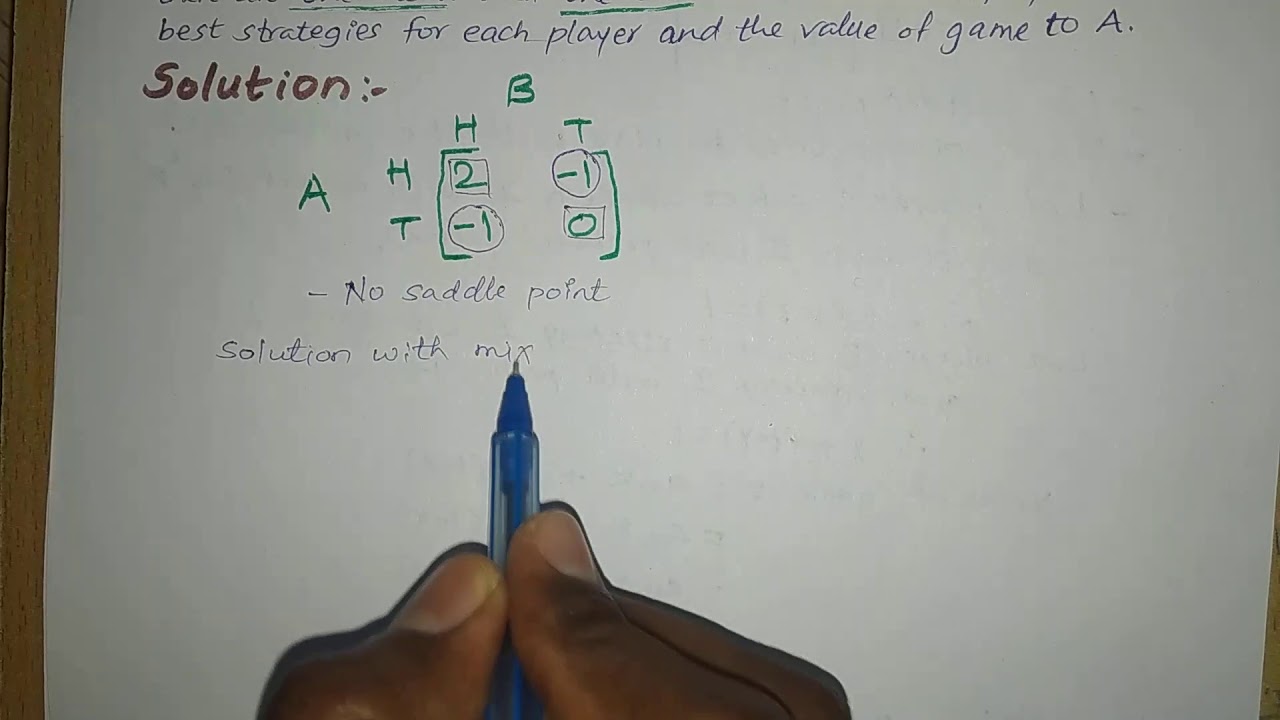 best strategies for each player and the value of game to A.
Solution:-
B
H T
A H 2 -1
T -1 0
- No saddle point
Solution with mix